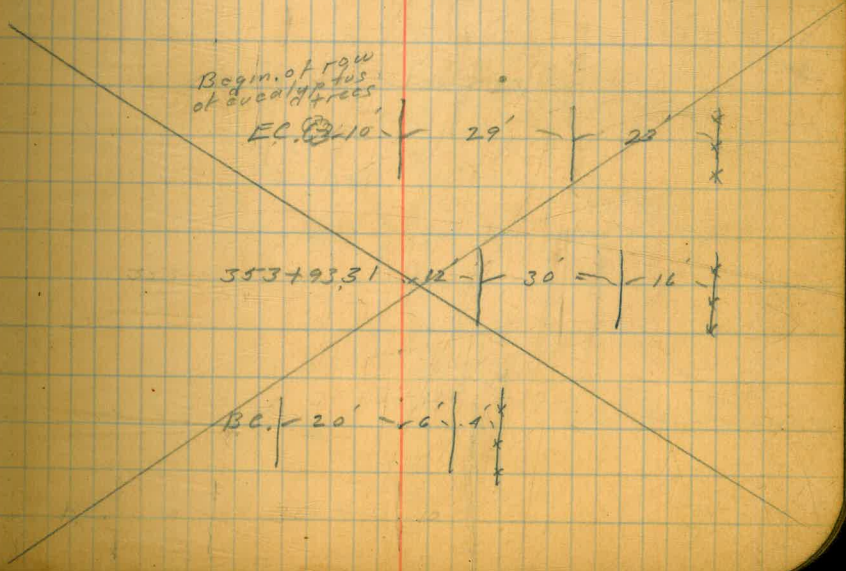 Begin. of row
of eucalyptus
trees
E.C. 10' 29' 23'
353+93.31 12' 30' 16'
B.C. 20' 6' 4'